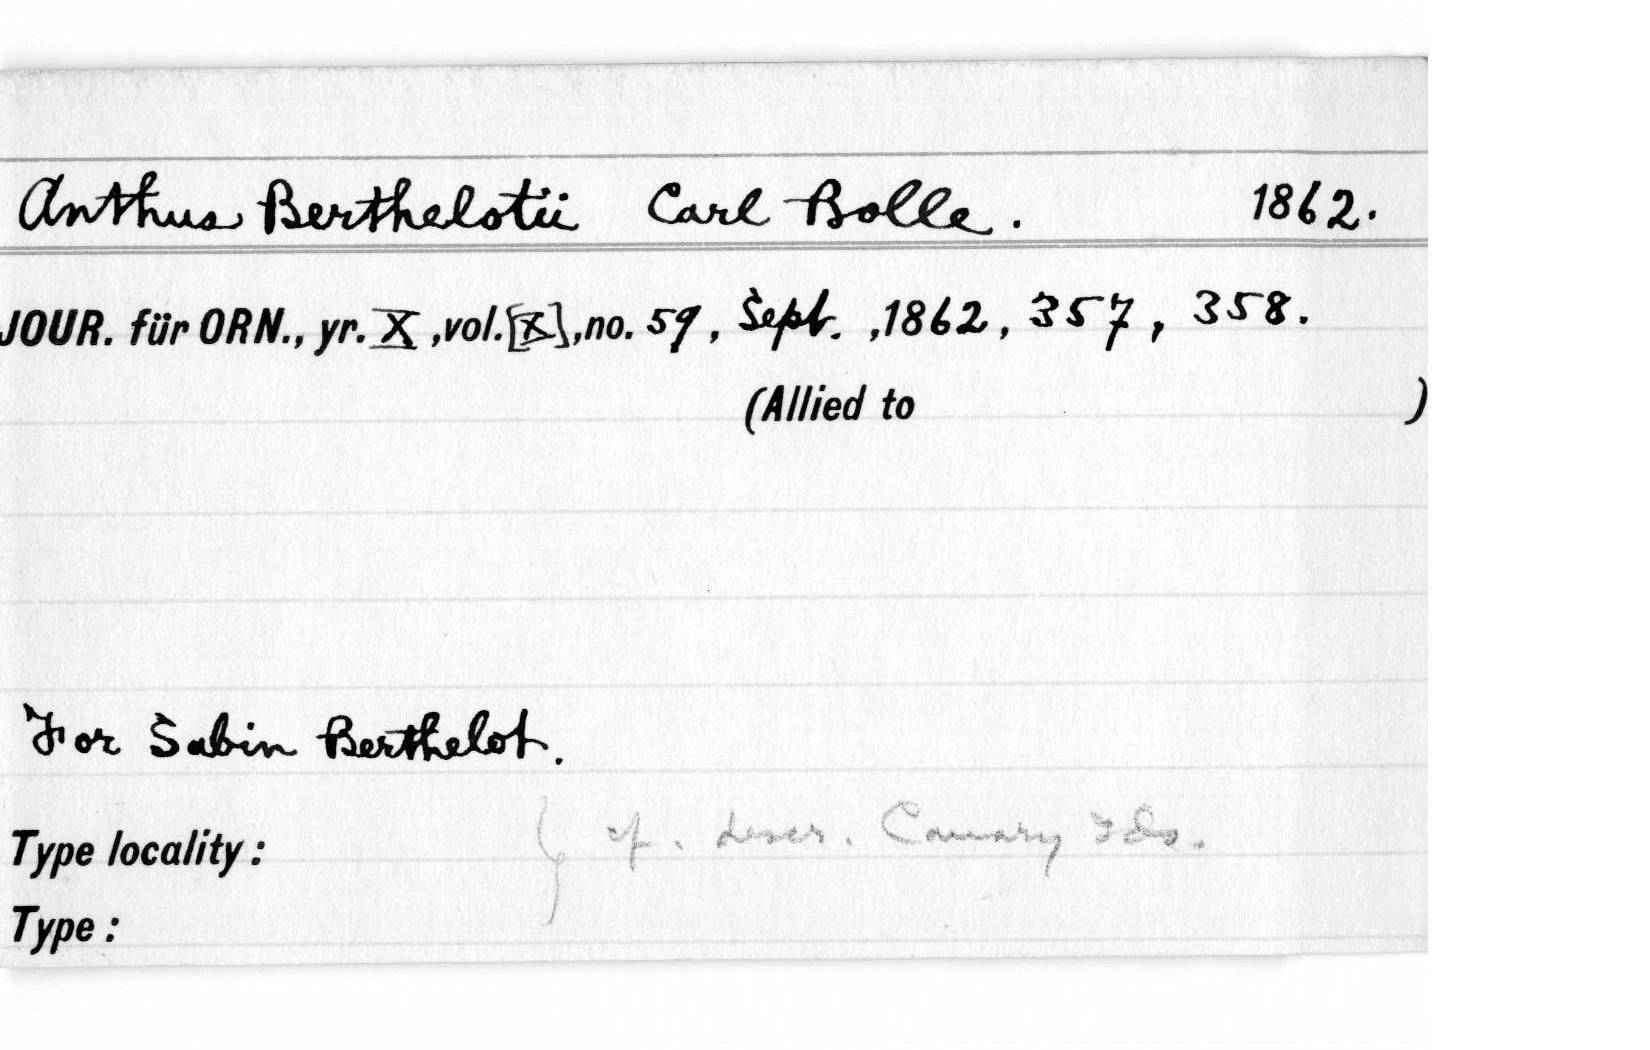 Anthus Berthelotii Carl Bolle. 1862.
JOUR. für ORN., yr. X, vol. [X], no. 59, Sept., 1862, 357, 358.
(Allied to )
For Sabin Berthelot.
Type locality: } cf. descr. Canary Ids.
Type: